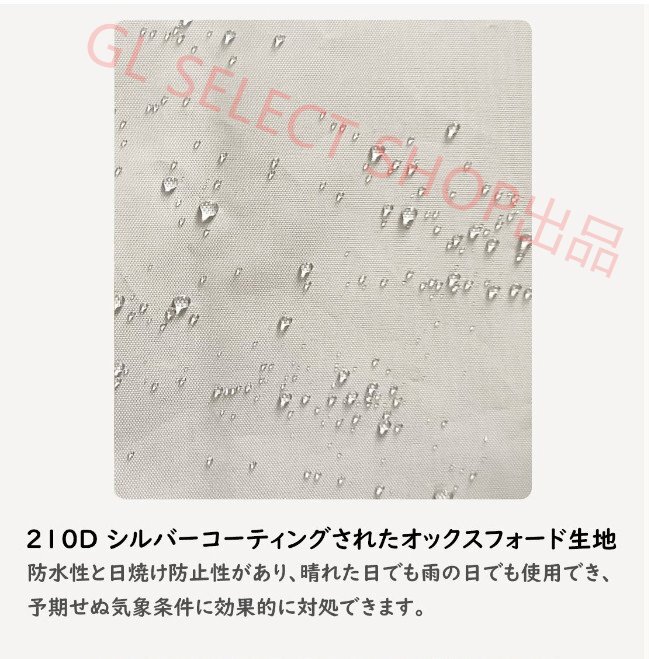 GL SELECT SHOP出品
210D シルバーコーティングされたオックスフォード生地
防水性と日焼け防止性があり、晴れた日でも雨の日でも使用でき、
予期せぬ気象条件に効果的に対処できます。